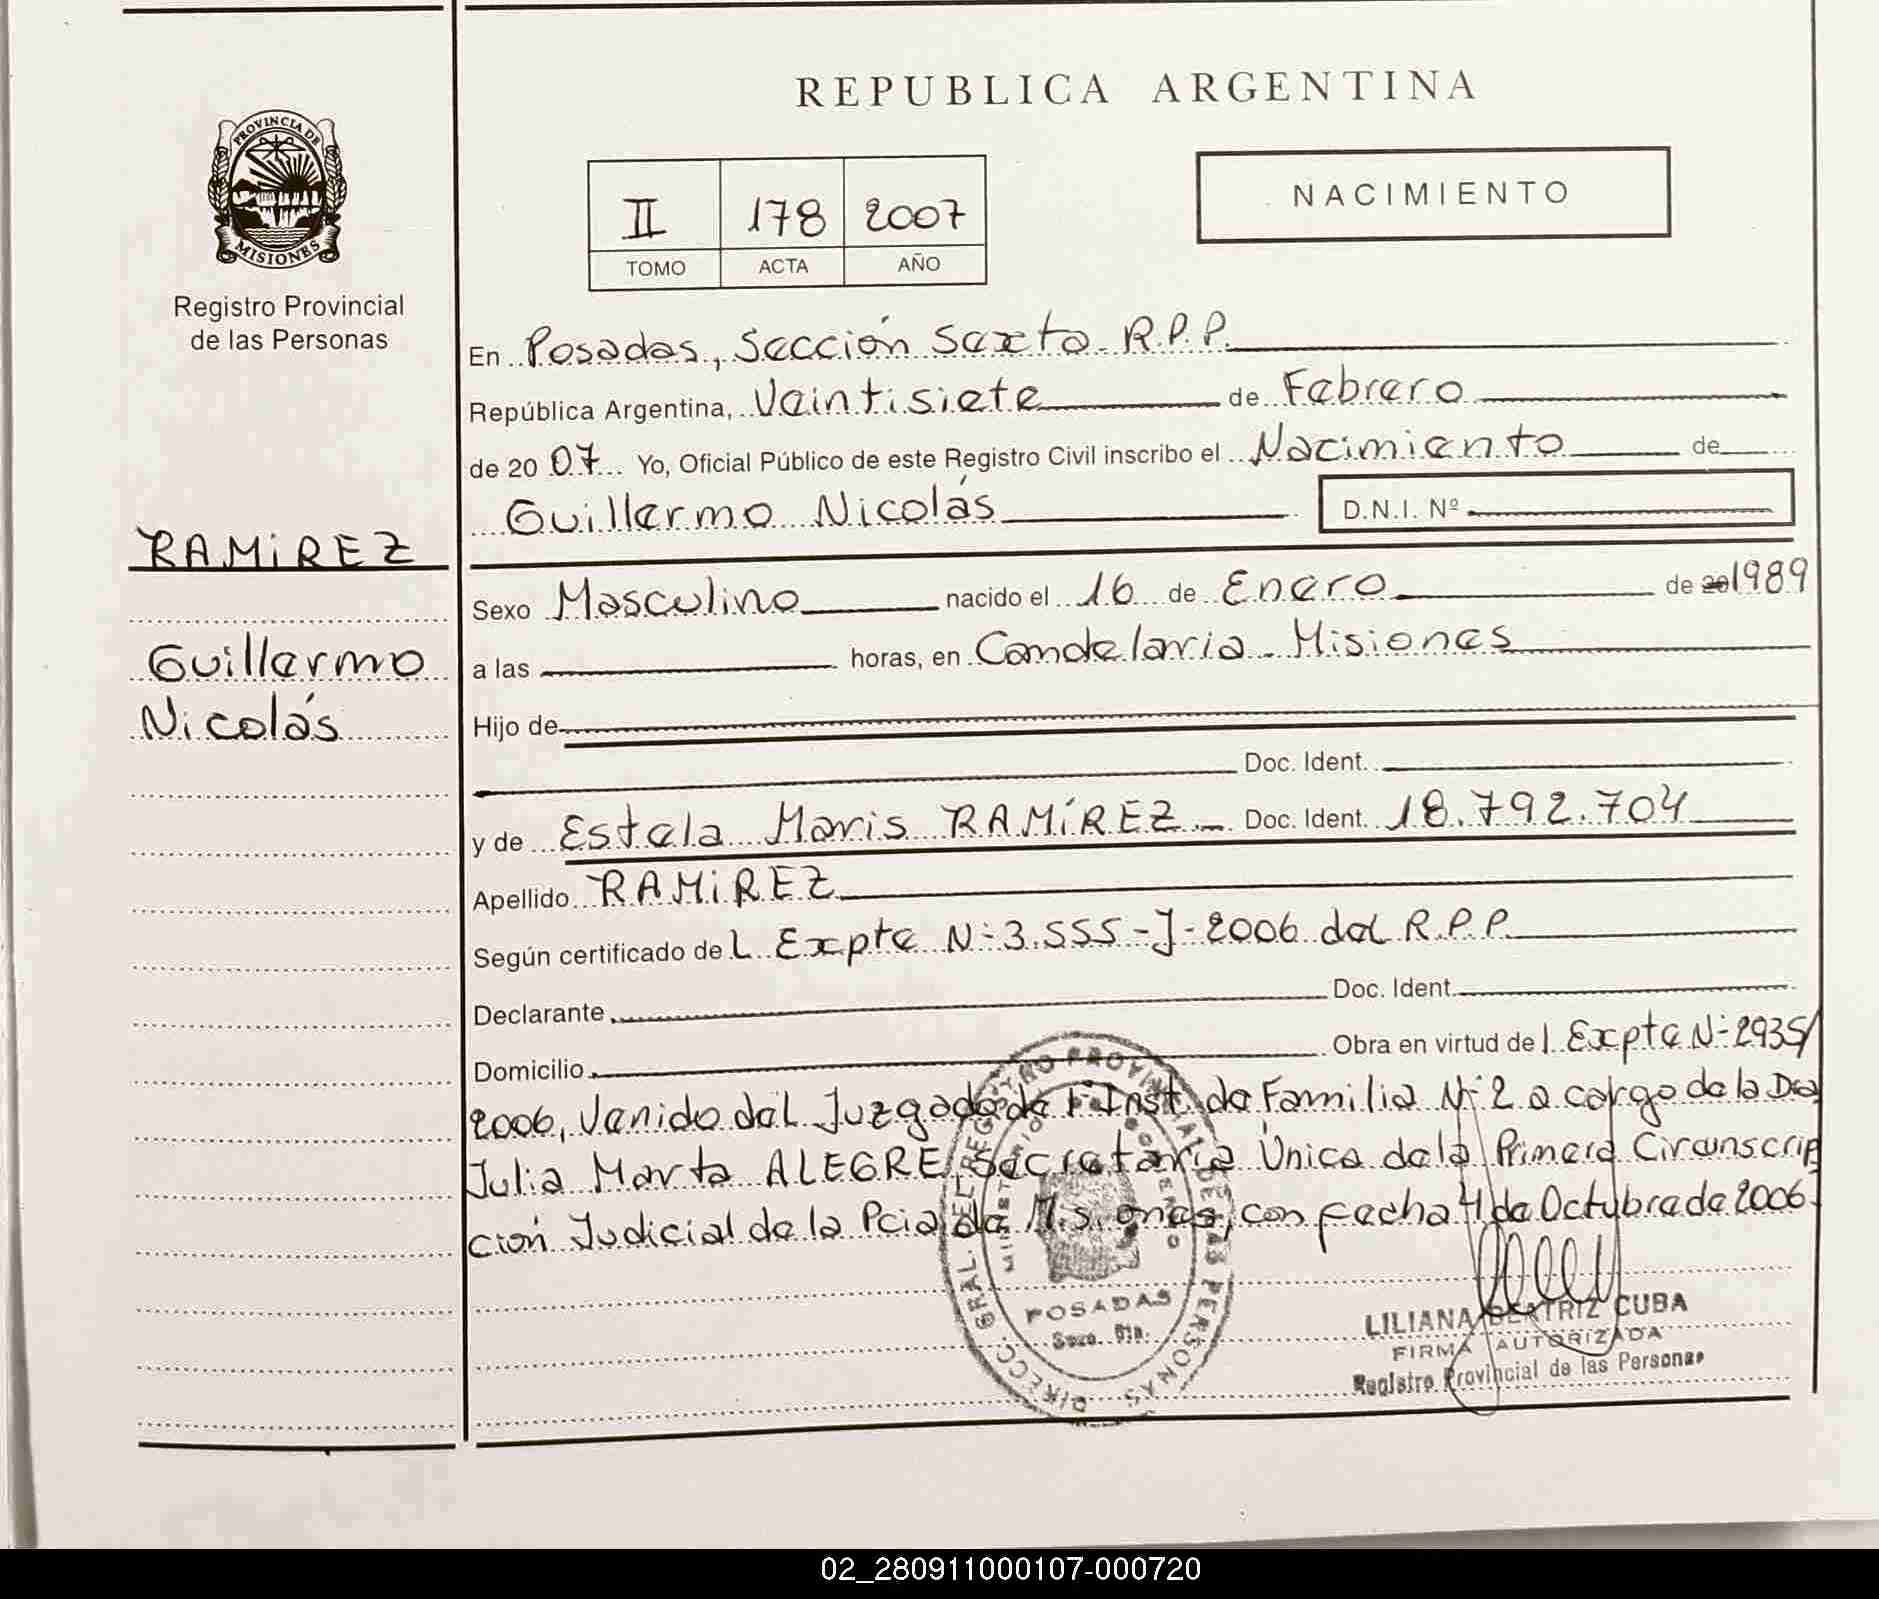 REPUBLICA ARGENTINA
PROVINCIA DE
MISIONES
Registro Provincial
de las Personas
NACIMIENTO
II 178 2007
TOMO ACTA AÑO
En Posadas, Sección Sexta R.P.P.
República Argentina, Veintisiete de Febrero
de 20 07 Yo, Oficial Público de este Registro Civil inscribo el Nacimiento de
Guillermo Nicolás D.N.I. Nº
RAMIREZ
Guillermo
Nicolás
Sexo Masculino nacido el 16 de Enero de 20 1989
a las horas, en Candelaria - Misiones
Hijo de
Doc. Ident.
y de Estela Maris RAMÍREZ Doc. Ident. 18.792.704
Apellido RAMIREZ
Según certificado del Expte N- 3.555-J-2006 del R.P.P.
Declarante Doc. Ident.
Domicilio Obra en virtud del Expte N- 2935/
2006, Venido del Juzgado de 1º Inst. de Familia N- 2 a cargo de la Dra
Julia Marta ALEGRE, Secretaría Única de la Primera Circunscrip
ción Judicial de la Pcia de Misiones, con fecha 4 de Octubre de 2006.
DIRECC. GRAL. DEL REGISTRO PROVINCIAL DE LAS PERSONAS
MINISTERIO DE GOBIERNO
POSADAS
LILIANA BEATRIZ CUBA
FIRMA AUTORIZADA
Registro Provincial de las Personas
02_280911000107-000720